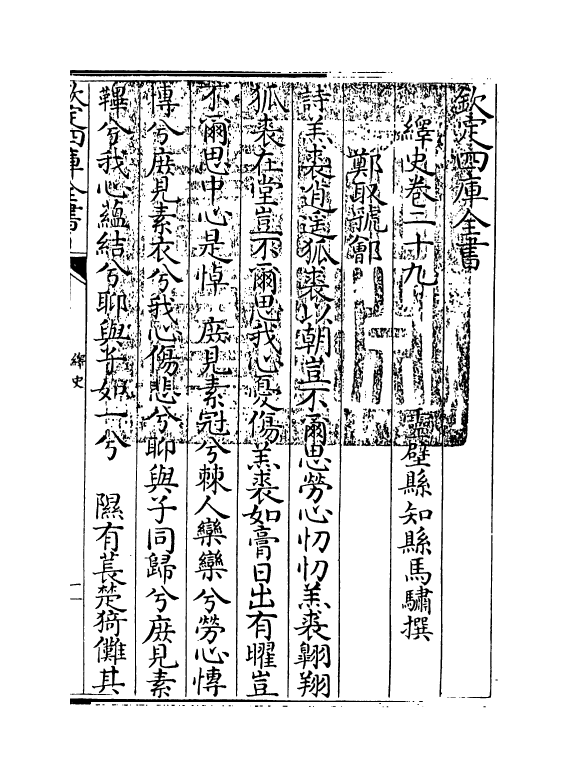 欽定四庫全書
繹史卷二十九　靈壁縣知縣馬驌撰
鄭取虢鄶
詩羔裘逍遙狐裘以朝豈不爾思勞心忉忉羔裘翺翔
狐裘在堂豈不爾思我心憂傷羔裘如膏日出有曜豈
不爾思中心是悼　庶見素冠兮棘人欒欒兮勞心慱
慱兮庶見素衣兮我心傷悲兮聊與子同歸兮庶見素
鞸兮我心蘊結兮聊與子如一兮　隰有萇楚猗儺其
欽定四庫全書
繹史
一